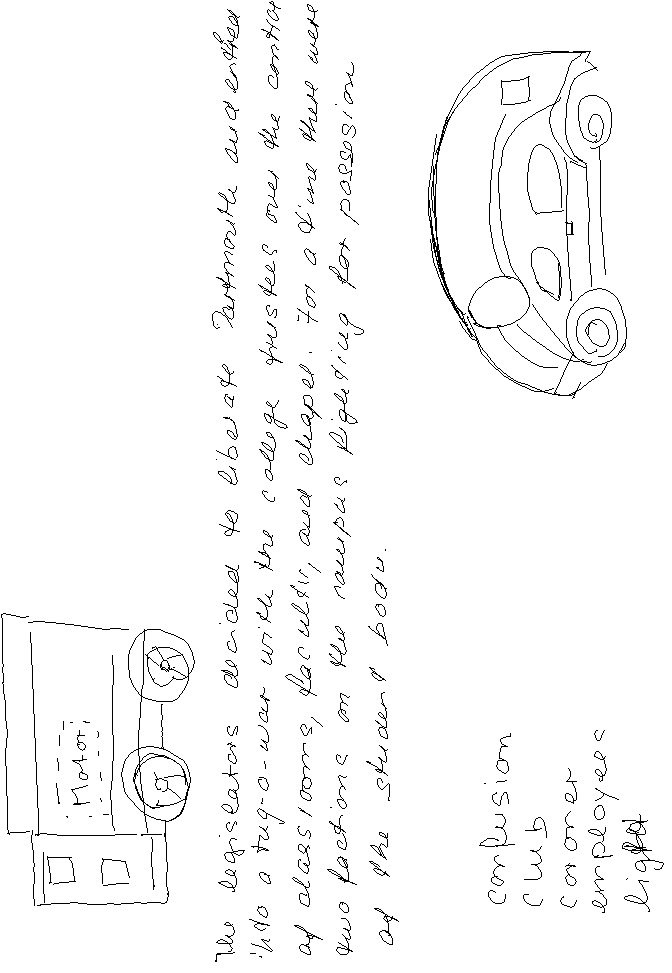 The legislators decided to liberate Dartmouth and entred
into a tug-o-war with the college trustees over the control
of classrooms, facultir, and chapel. For a time there were
two factions on the campus fighting for possesion
of the student body.
Motor
confusion
Club
coroner
employees
light